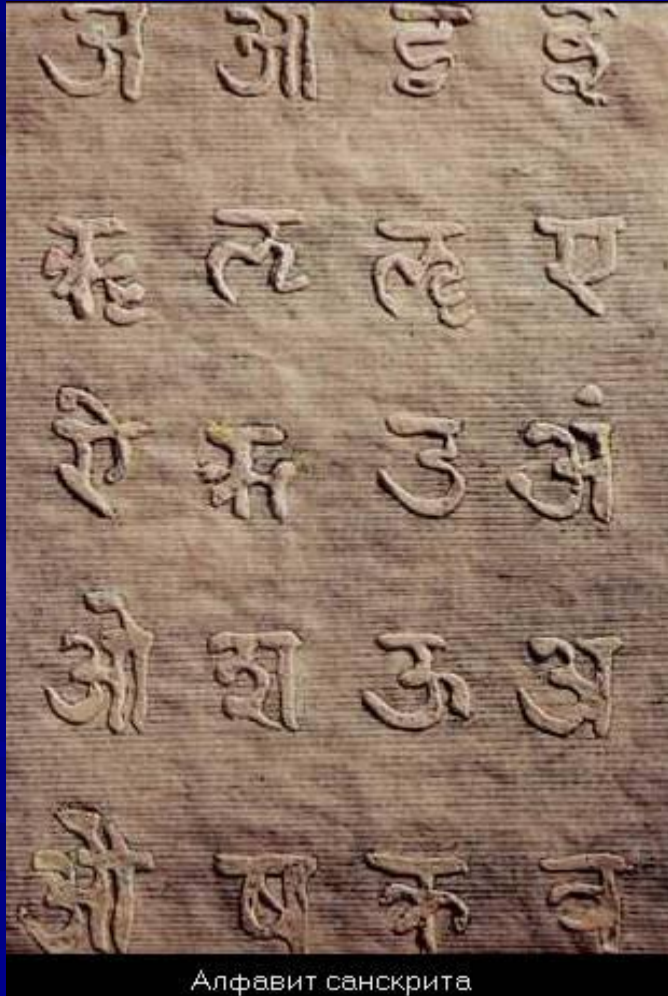 अ आ इ ई
ॠ ऌ ॡ ए
ऐ ऋ उ अं
ओ श ऊ अ
औ ष क व
Алфавит санскрита